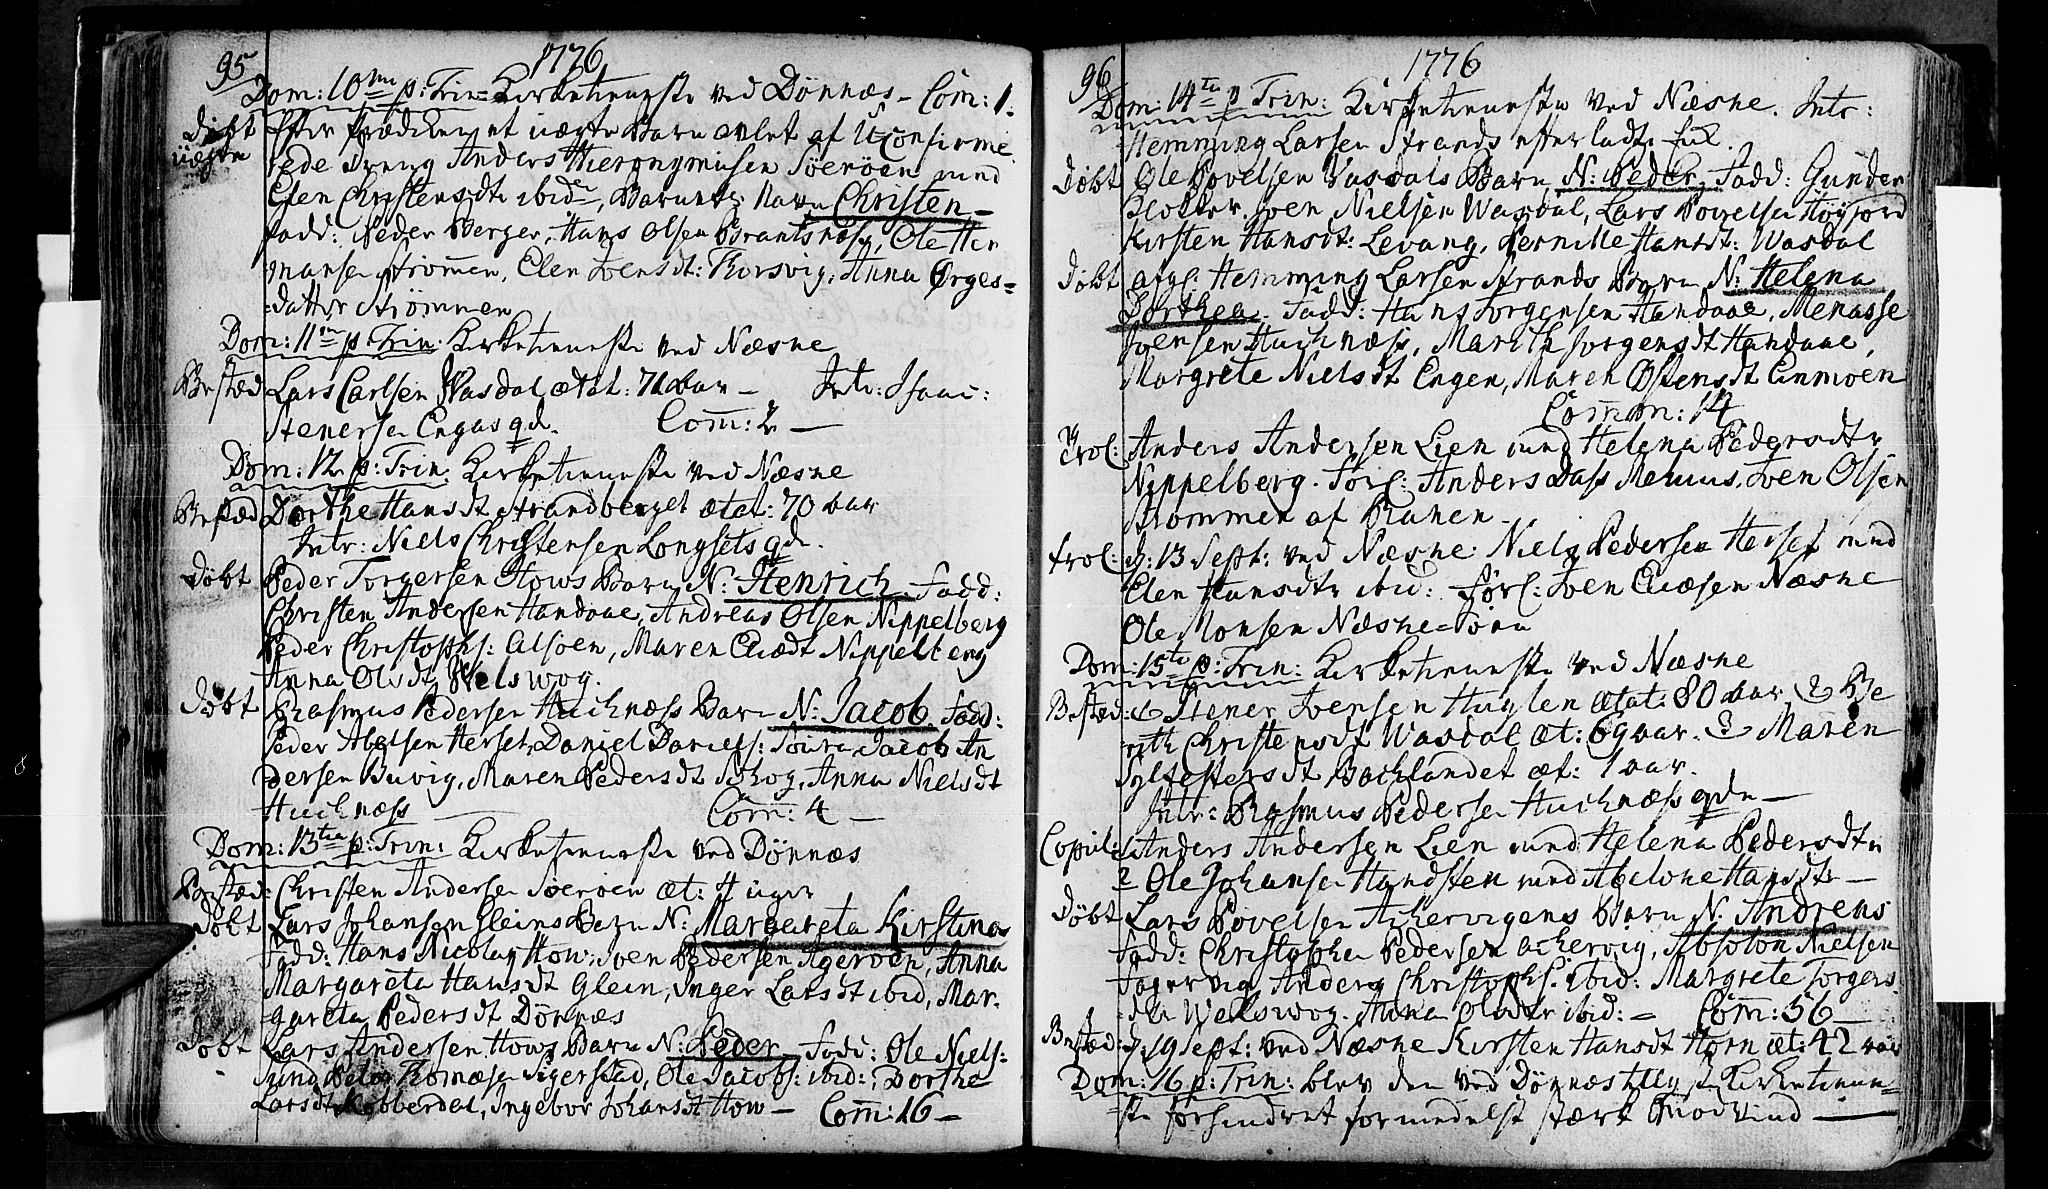 95
1776
Dom: 10me p: Trin: Kirketieneste ved Dönnæs - Com: 1.
Döbt Efter Prædiken et uægte Barn avlet af Uconfirme
uægte rede Dreng Anders Hieronymusen Söeröen med
Elen Christensdt ibid, Barnets Navn Christen -
Fadd: Peder Berger, Hans Olsen Brantsnæs, Ole Her
mansen Strömen, Elen Ivensdt: Korsvig, Anna Örges=
=datter Strömmen
Dom: 11me p. Trin. Kirketieneste ved Næsne
Bested Lars Carlsen Wasdal ætat: 71 aar - Intr: Isaac
Stenersen Engas qd. Com: 2 -
Dom: 12 p: Trin. Kirketieneste ved Næsne
Bested Dorthe Hansdt Strandberget ætat: 70 aar
Intr: Niels Christensen Longsets qd.
Döbt Peder Torgersen Hows Barn N: Henrich Fadd:
Christen Andersen Handaae, Andreas Olsen Nippelberg
Peder Christophs: Alsöen, Maren Eliædt Nippelberg
Anna Olsdt Welswog.
Döbt Rasmus Pedersen Huchnæss Barn N: Jacob Fadd:
Peder Abelsen Herset, Daniel Daniels: Jacob An
dersen Buvig, Maren Pedersdt Anna Nielsdt
Huchnæss Com: 4 -
Dom: 13tia p: Trin: Kirketieneste ved Dönnæs
Bested: Christen Andersen Söeröen æt: 4 uger
Döbt Lars Johansen Gleins Barn N: Margareta Kirstina
Fadd: Hans Nicolay How, Iven Pedersen Ageröen, Anna
Margareta Hansdt Glein, Inger Larsdt ibid, Mar=
=gareta Pedersdt Dönnæs
Döbt Lars Andersen Hows Barn N: Peder Fadd: Ole Niels:
Sund Peder Thomæsen Sigerstad, Ole Jacobs: ibid:, Dorthe
Larsdt Kobberdal, Ingebor Johansdt How - Com: 16 -
96
1776
Dom: 14te p Trin: Kirketieneste ved Næsne. Intr:
Hemming Larsen Strands efterladte
Döbt Ole Povelsen Wasdals Barn N: Peder, Fadd: Gunder
Klokker. Iven Nielsen Wasdal, Lars Povelsen Höyford
Kirsten Hansdt: Levang, Pernille Hansdt: Wasdal
Döbt afgl: Hemming Larsen Strands Barn N: Helena
Dorthea. Fadd: Hans Jorgensen Handaae, Menasse
Ivensen Huchnæss, Marith Jorgensdt Handaae,
Margrete Nielsdt Engen, Maren Östensdt Einmoen
Common: 14
Trol: Anders Andersen Lien med Helena Pedersdtr
Nippelberg. Forl: Anders Dass Iven Olsen
Strommen af Ranen -
Trol: d: 13 Sept: ved Næsne: Niels Pedersen Herset med
Elen Hansdtr ibid: Förl: Iven Eliæsen Næsne
Ole Monsen Næsne=
Dom: 15te p: Trin: Kirketieneste ved Næsne
Bested: 1 Stener Ivensen Huglen ætat: 80 aar, 2 Be
rith Christensdt Wasdal æt: 69 aar. 3 Maren
Sylfestersdt Bachlandet æt: 1 aar.
Intr: Rasmus Pedersen Huchnæss qde -
Copul: 1 Anders Andersen Lien med Helena Pedersdtr
2 Ole Johansen Handsten med Abelone Hansdtr -
Döbt Lars Povelsen Achervigens Barn N: Andreas
Fadd: Christopher Pedersen achervig, Absolon Nielsen
Fagervig, Anders Christophs. ibid: Margrete Torgers
dtr Welswog. Anna Olsdtr ibid: - Com: 56 -
Bested: d: 19 Sept: ved Næsne Kirsten Hansdt Horn æt: 42 aar
Dom: 16 p: Trin: blev den ved Dönnæs Kirketiene=
=ste forhindret formedelst stærk Modvind -